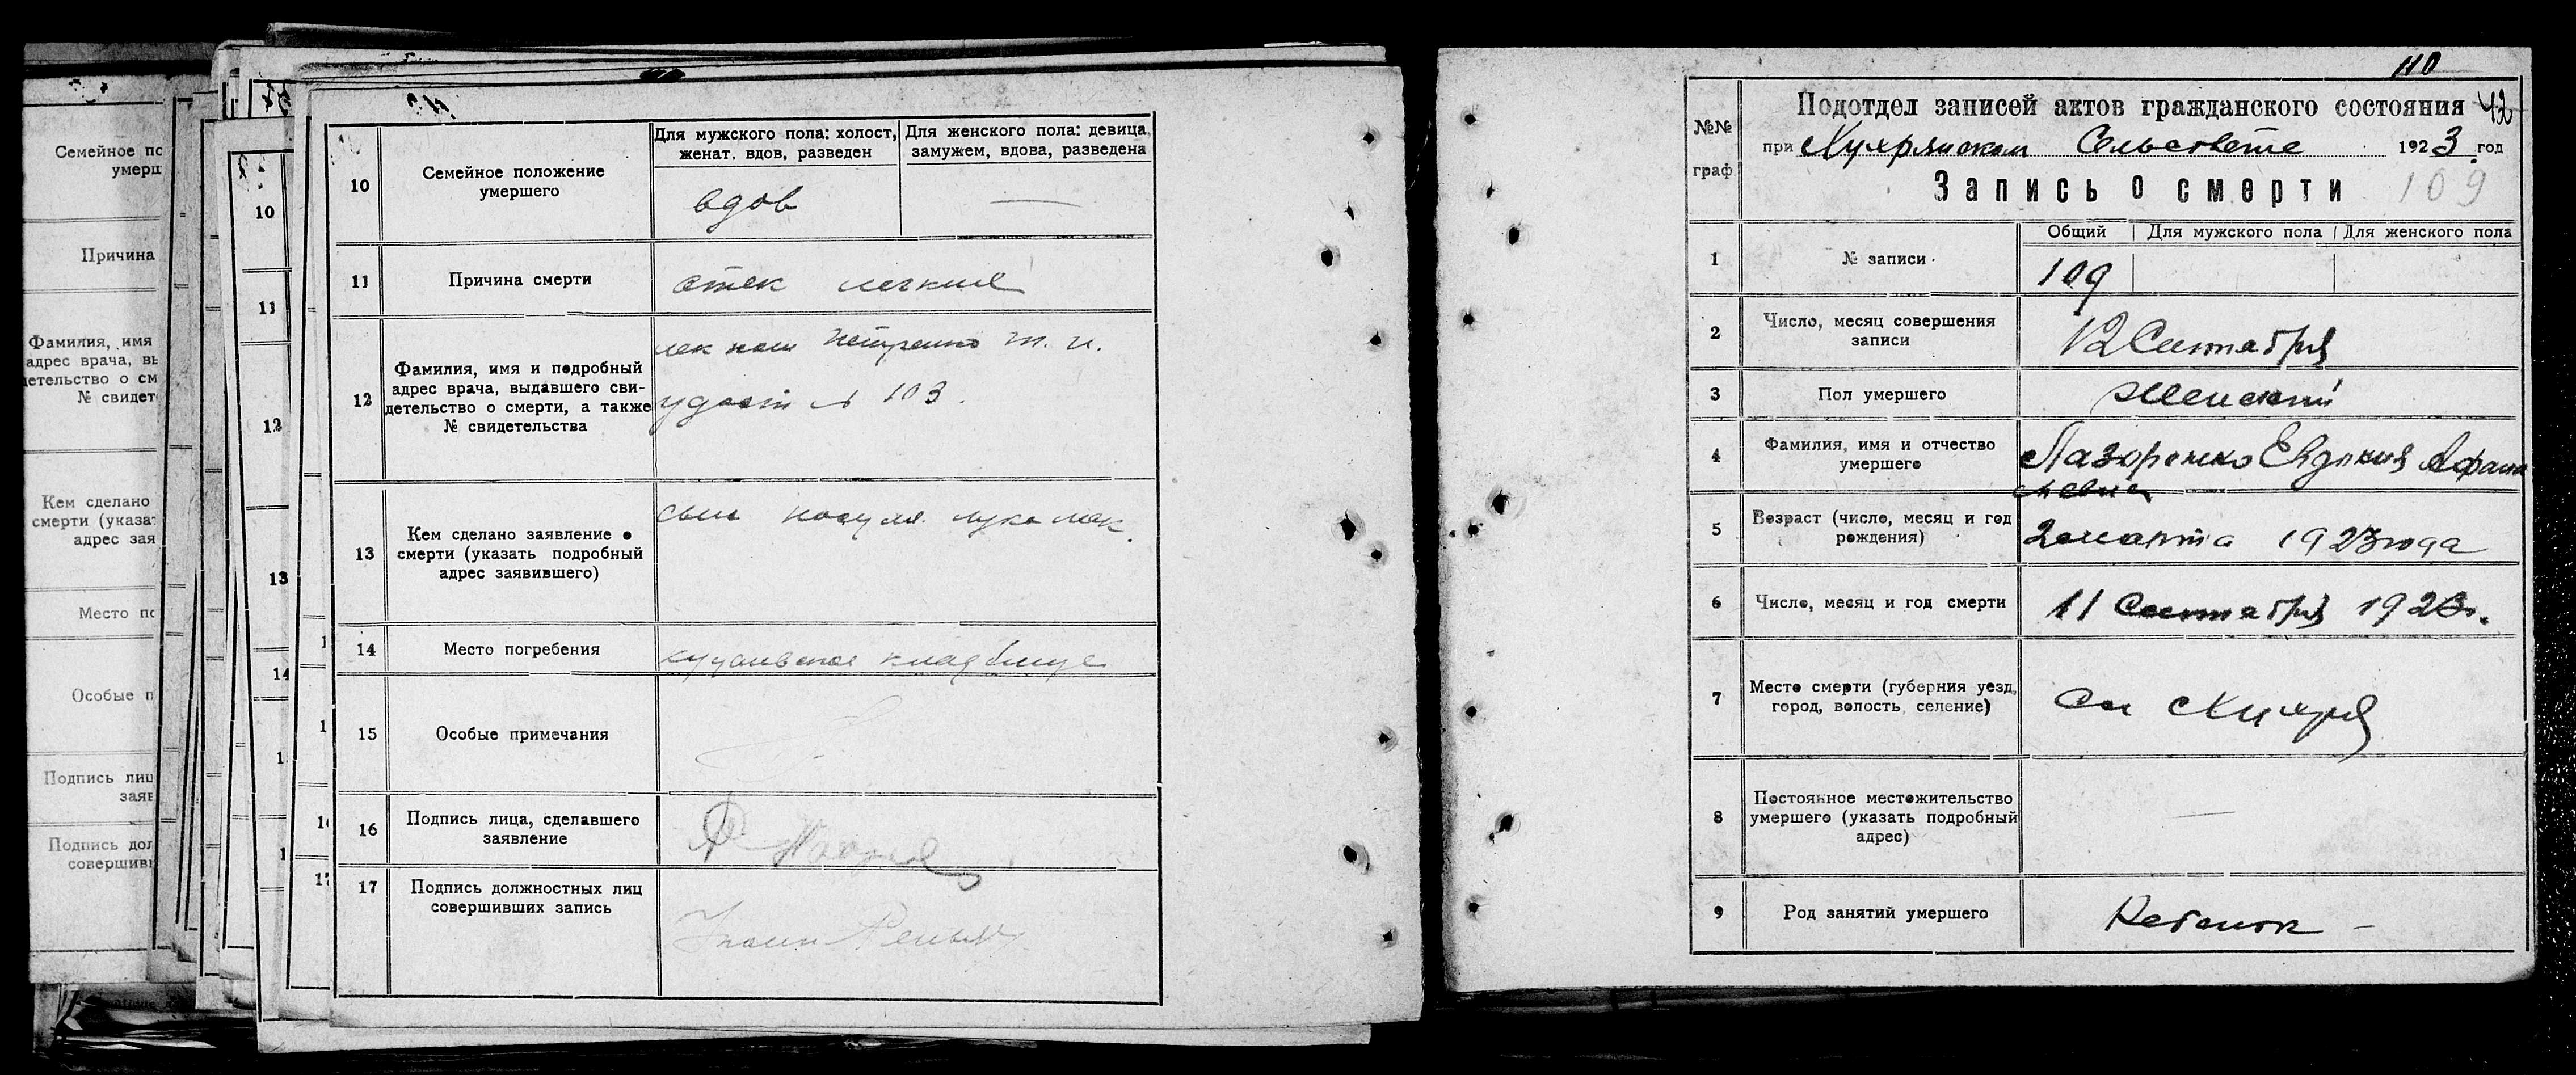 Семейное по
умерш
Причина
Фамилия, имя
адрес врача, вы
детельство о см
№ свидет
Кем сделано
смерти (указат
адрес зая
Место по
Особые п
Подпись лиц
заяв
Подпись дол
совершивш
10
11
12
13
14
10
Семейное положение
умершего
Для мужского пола: холост,
женат, вдов, разведен
Для женского пола: девица,
замужем, вдова, разведена
вдов
11
Причина смерти
отек легких
12
Фамилия, имя и подробный
адрес врача, выдавшего сви-
детельство о смерти, а также
№ свидетельства
№ 103.
13
Кем сделано заявление о
смерти (указать подробный
адрес заявившего)
сын
14
Место погребения
кладбище
15
Особые примечания
16
Подпись лица, сделавшего
заявление
17
Подпись должностных лиц
совершивших запись
110
№№
граф
Подотдел записей актов гражданского состояния
42
при Сельсовете 1923 год
Запись о смерти
109
1
№ записи
Общий
Для мужского пола
Для женского пола
109
2
Число, месяц совершения
записи
12 Сентября
3
Пол умершего
женский
4
Фамилия, имя и отчество
умершего
Лазоренко Евдокия Афана
сьевна
5
Возраст (число, месяц и год
рождения)
марта 1923 года
6
Число, месяц и год смерти
11 Сентября 1923г.
7
Место смерти (губерния уезд,
город, волость, селение)
8
Постоянное местожительство
умершего (указать подробный
адрес)
9
Род занятий умершего
Ребенок